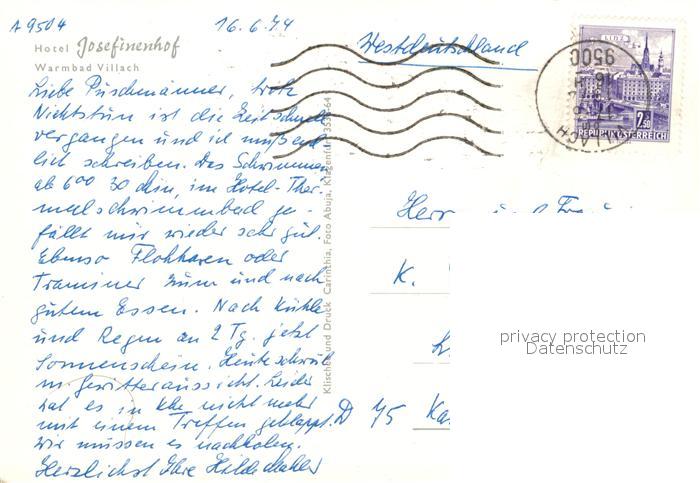 A 9504
16.6.74
Hotel Josefinenhof
Warmbad Villach
Westdeutschland
Liebe Püschmänner, trotz
Nichtstun ist die Zeit schnell
vergangen und ich muß end
lich schreiben. Das Schwimmen
ab 6 00 30 Min, im Hotel-Ther-
malschwimmbad ge-
fällt mir wieder sehr gut.
Ebenso Flohhaxen oder
Traminer zum und nach
gutem Essen. Nach Kühle
und Regen an 2 Tg. jetzt
Sonnenschein. Heute schwül
m Gewitteraussicht. Leider
hat es in nicht mehr
mit einem Treffen geklappt.
Wir müssen es nachholen.
Herzlichst Ihre Hilde
Klischee und Druck Carinthia, Foto Abuja, Klagenfurt
LINZ
2.50
REPUBLIK ÖSTERREICH
9500
VILLACH
Herr
K.
D 75 Ka
privacy protection
Datenschutz